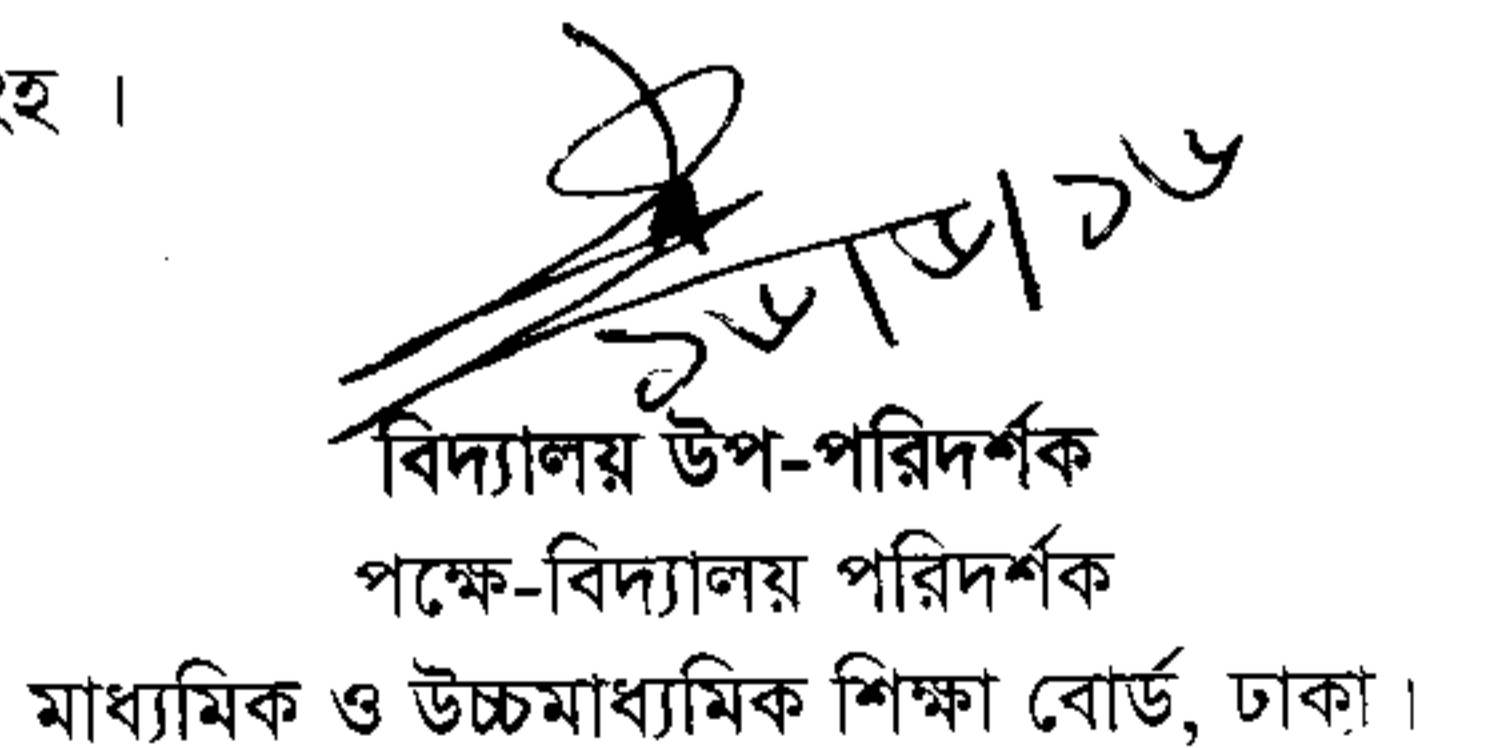 ংহ ।
১৬/৬/১৬
বিদ্যালয় উপ-পরিদর্শক
পক্ষে-বিদ্যালয় পরিদর্শক
মাধ্যমিক ও উচ্চমাধ্যমিক শিক্ষা বোর্ড, ঢাকা।